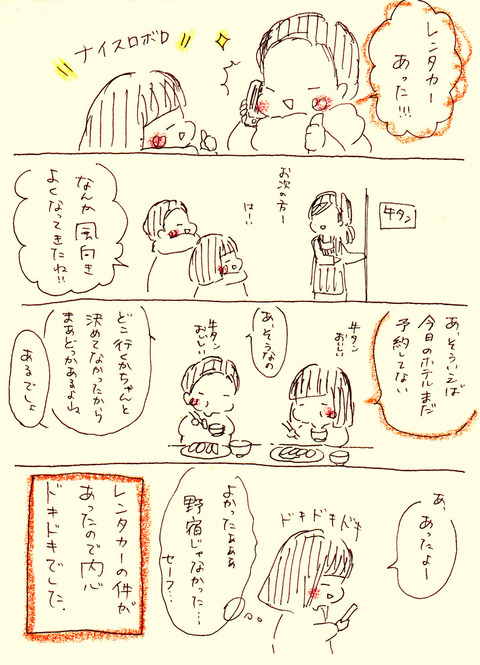 レンタカー
あった!!!
ナイスロボロ
牛タン
お次の方ー
はーい
なんか風向き
よくなってきたね!!
あ、そういえば
今日のホテルまだ
予約してない
牛タン
おいしい
あ、そうなの
牛タン
おいしい
どこ行くかちゃんと
決めてなかったから
まあどっかあるよね
あるでしょ
あ、
あったよー
ドキドキドキ
よかったぁぁぁ
野宿じゃなかった…
セーフ…
レンタカーの件が
あったので内心
ドキドキでした.